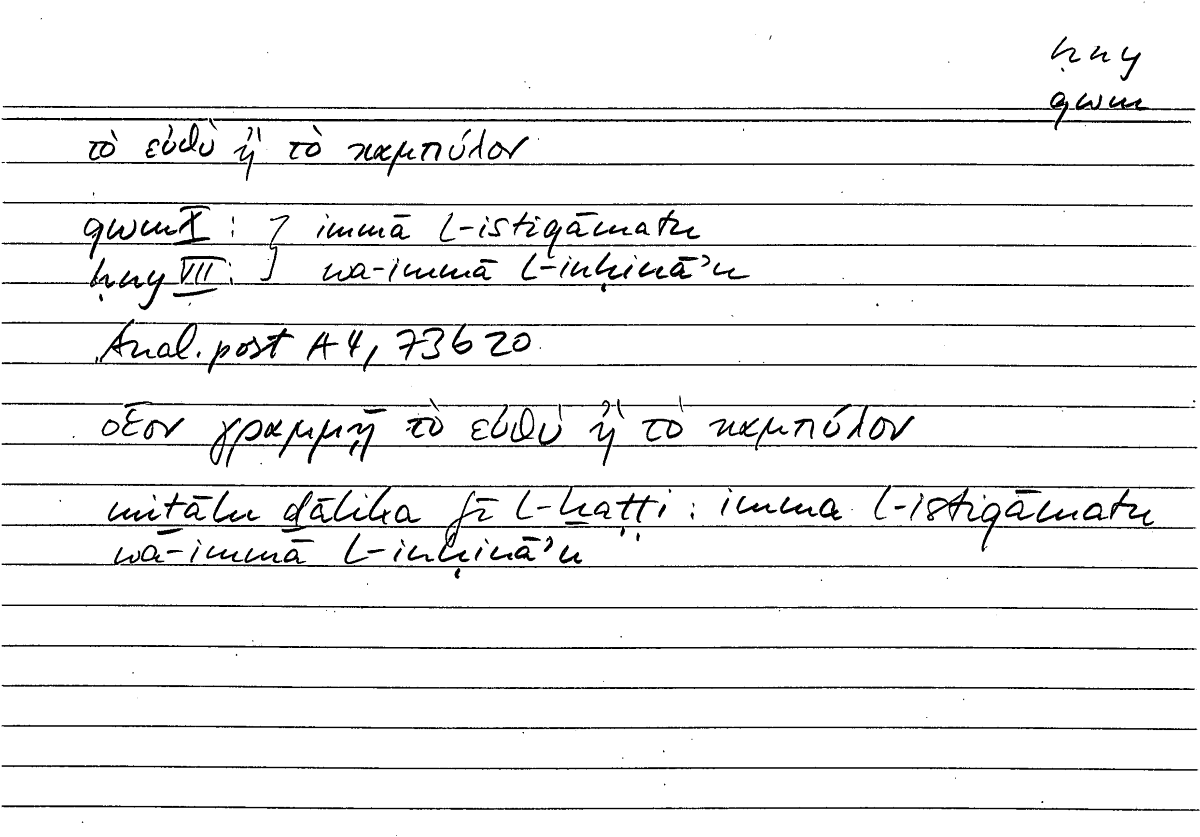 ḥny
qwm
τὸ εὐθὺ ἢ τὸ καμπύλον
qwm X : ] immā l-istiqāmatu
ḥny VII : ] wa-immā l-inḥināʾu
Anal. post A 4, 73 b 20
οἷον γραμμῇ τὸ εὐθὺ ἢ τὸ καμπύλον
miṯālu ḏālika fī l-ḫaṭṭi : imma l-istiqāmatu
wa-immā l-inḥināʾu